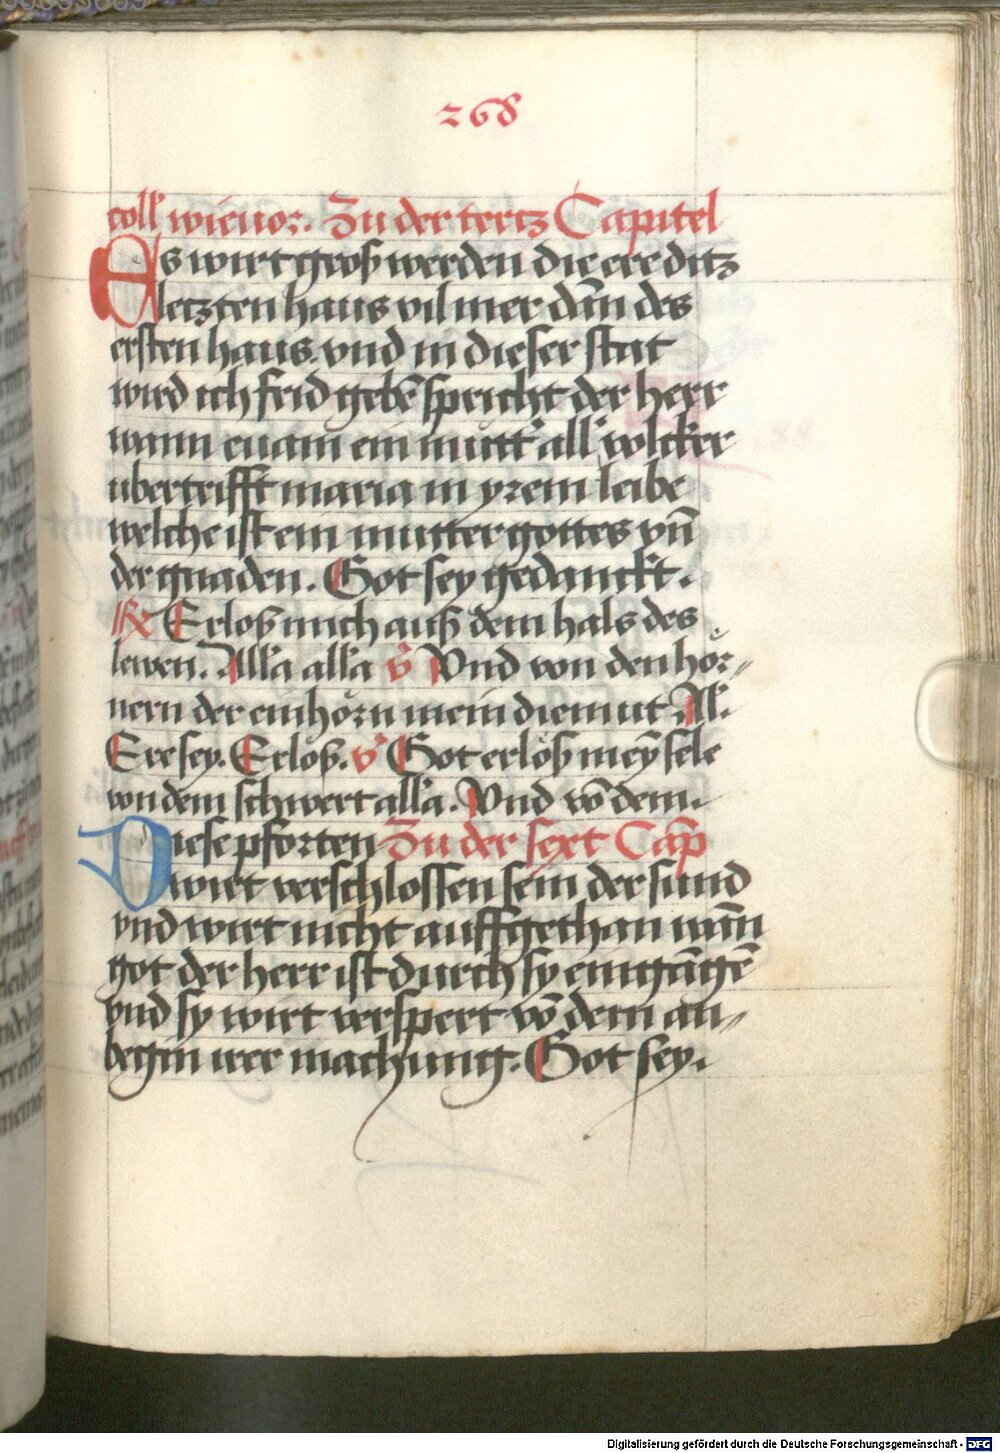 268
coll' wieuor. Zu der tertz Capitel
Es wirt groß werden die ere ditz
letzten haus vil mer dañ des
ersten haus. vnd in dieser stat
wird ich frid gebē spricht der herr
wann euam ein mutt' all' volcker
ubertrifft maria in yrem leibe
welche ist ein mutter gottes vñ
der gnaden. Got sey gedanckt.
℟ Erloß mich auß dem hals des
lewen. All'a all'a ℣ Vnd von den hör⸗
nern der einhörn mein diemut Al'.
Ere sey. Erlöß. ℣ Got erlöß meȳ sele
von dem schwert all'a. Vnd vō dem.
Diese pforten Zu der sext Cap̄
wirt verschlossen sein der sund
vnd wirt nicht auffgethan wañ
got der herr ist durch sy eingāgē
vnd sy wirt verspert vō dem an⸗
begin irer machung. Got sey.
Digitalisierung gefördert durch die Deutsche Forschungsgemeinschaft - DFG